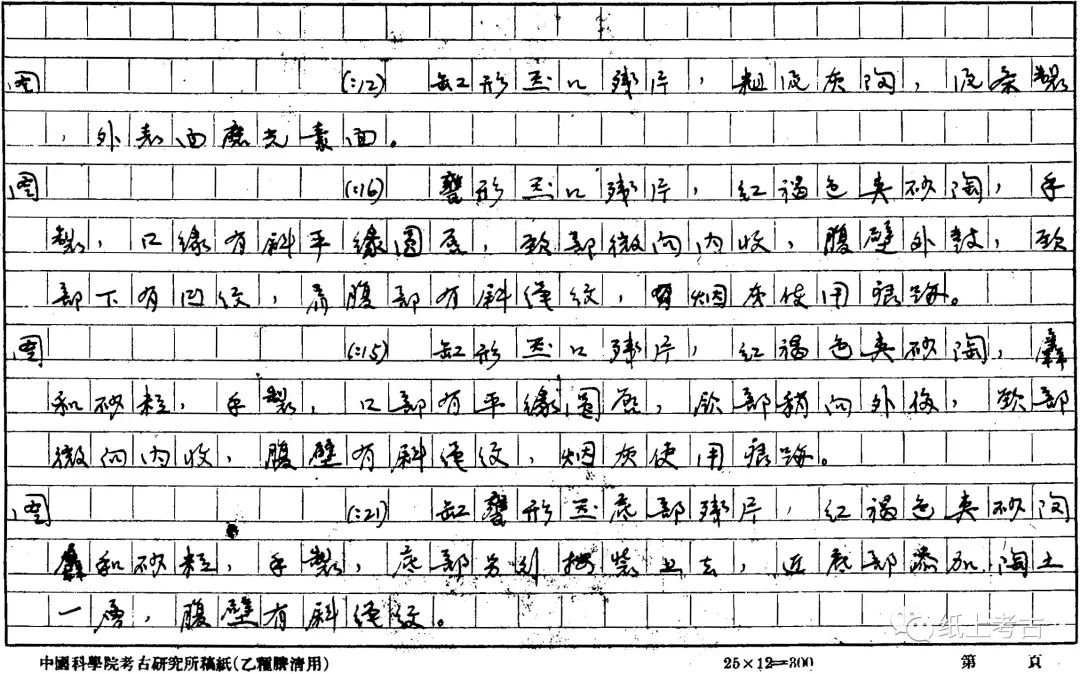 图 (:12) 缸形器口残片，粗泥灰陶，泥条製
，外表面磨光素面。
图 (:16) 甕形器口残片，红褐色夹砂陶，手
製，口缘有斜平缘圆唇，颈部微向内收，腹壁外鼓，颈
部下有凹纹，肩腹部有斜绳纹，有烟灰使用痕跡。
图 (:15) 缸形器口残片，红褐色夹砂陶，羼
和砂粒，手製，口部有平缘圆唇，唇部稍向外侈，颈部
微向内收，腹壁有斜绳纹，烟灰使用痕跡。
图 (:21) 缸甕形器底部残片，红褐色夹砂陶
羼和砂粒，手製，底部另外按装上去，近底部添加陶土
一层，腹壁有斜绳纹。
纸上考古
中國科學院考古研究所稿紙(乙種謄清用) 25×12=300 第 頁